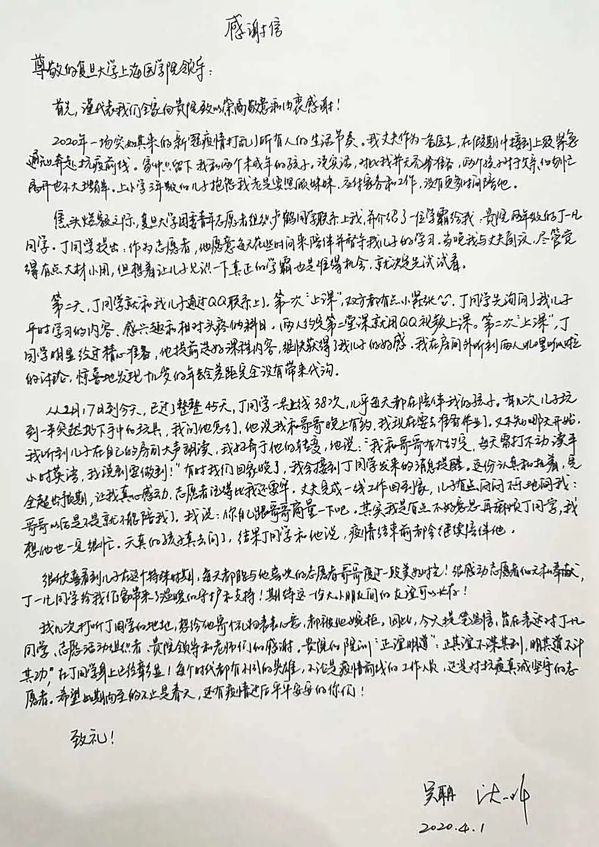 感谢信
尊敬的复旦大学上海医学院领导：
首先，谨代表我们全家向贵院致以崇高敬意和由衷感谢！
2020年一场突如其来的新冠疫情打乱了所有人的生活节奏。我丈夫作为一名医生，在假期中接到上级紧急
通知奔赴抗疫前线。家中留下我和两个未成年的孩子，说实话，对此我并无充分准备，两个孩子对于父亲的匆忙
离开也不大理解。上小学3年级的儿子抱怨我光是要照顾妹妹，应付家务和工作，没有更多时间陪他。
焦头烂额之际，复旦大学团委青年志愿者组织卢鹤同学联系上我，并介绍了一位学霸给我：贵院两年级的丁一凡
同学。丁同学提出：作为志愿者，他愿意每天花些时间来陪伴并帮助我儿子的学习。当晚我与丈夫商议，尽管觉
得有点大材小用，但想着让儿子见识一下真正的学霸也是难得机会，就决定先试试看。
第二天，丁同学就和我儿子通过QQ联系上了。第一次“上课”，双方都有点小紧张，丁同学先询问了我儿子
平时学习的内容、感兴趣和相对头疼的科目，两人约定第二堂课就用QQ视频上课。第二次“上课”，丁
同学明显经过精心准备，他提前选好课程内容，很快获得了我儿子的好感。我在房间外听到两人叽里呱啦
的讨论，惊喜地发现九岁的年龄差距完全没有带来代沟。
从2月17日到今天，已过了整整45天，丁同学一共上线38次，几乎每天都在陪伴我的孩子。有几次儿子玩
到一半突然扔下手中的玩具，我问他怎么了，他说我和哥哥晚上有约，我现在要去准备作业了。又不知哪天开始，
我听到儿子在自己的房间大声朗读，我好奇于他们的转变，他说：“我和哥哥有个约定，每天雷打不动读半
小时英语，我说到要做到！”有时我们回家晚了，我会接到丁同学发来的消息提醒，这份认真和执着，完
全超出预期，让我真心感动，志愿者活得比我还要牢。丈夫完成一线工作回到家，儿子有点闷闷不乐地问我：
哥哥以后是不是就不能陪我了。我说：你自己跟哥哥商量一下吧。其实我是有点不好意思再麻烦丁同学，我
想他也一定很忙。天真的孩子真去问了，结果丁同学和他说，疫情结束前都会继续陪伴他。
很欣喜看到儿子在这个特殊时期，每天都能与他喜欢的志愿者哥哥度过一段美好时光！很感动志愿者们的无私奉献，
丁一凡同学给我们家带来了温暖的守护和支持！期待这一份大小朋友间的友谊可以长存！
我几次打听丁同学的地址，想给他寄份礼物表表心意，都被他婉拒，因此，今天提笔写信，旨在表达对丁一凡
同学、志愿活动组织者、贵院领导和老师们的感谢。贵院的院训“正谊明道”：正其谊不谋其利，明其道不计
其功”在丁同学身上已经彰显！每个时代都有不同的英雄，不论是疫情前线的工作人员，还是对抗疫真诚坚守的志
愿者。希望如期而至的不止是春天，还有疫情过后平平安安的你们！
致礼！
吴聃
2020.4.1